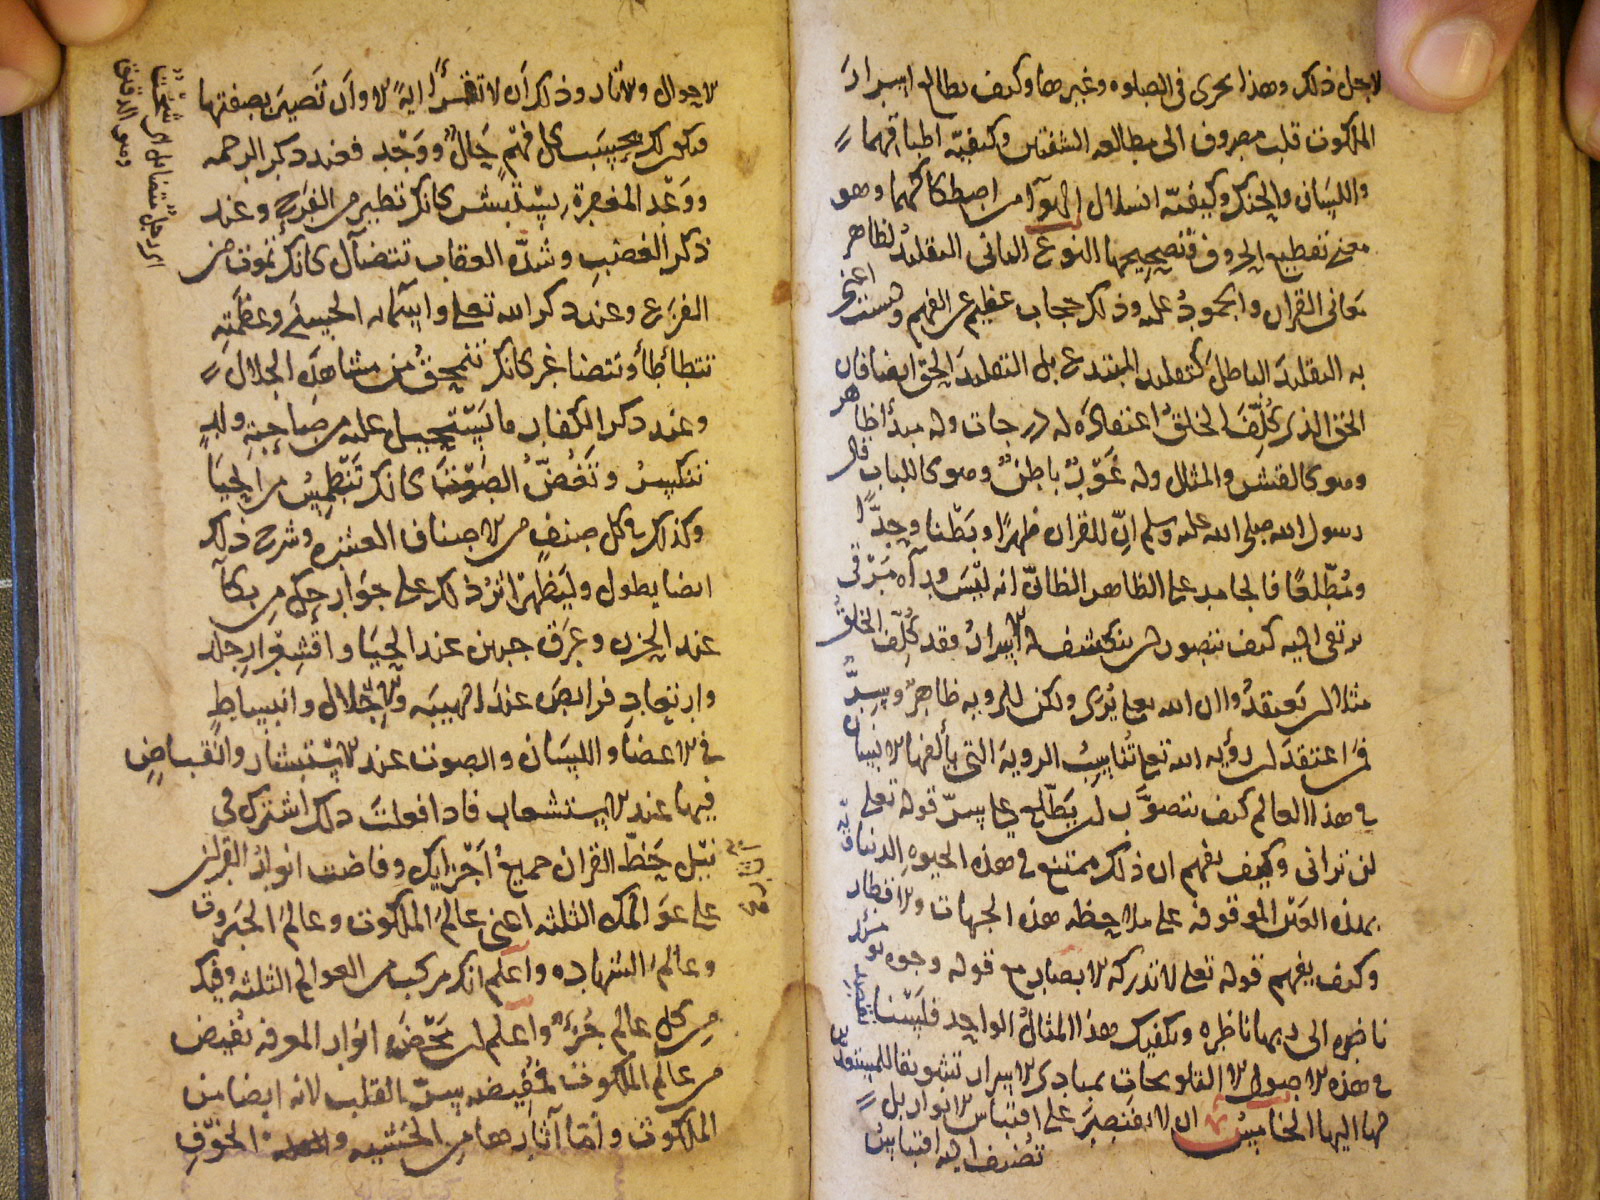 لاجل ذلك وهذا يجرى فى الصلوه وغيرها وكيف يطالع اسرار
الملكوت قلب مصروف الى مطالعه الشفتين وكيفيّه اطباقهما
واللسان والحنك وكيفيّه انسلال الهوآ من اصطكاكهما وهو
معنى تقطيع الحروف وتصحيحها النوع الثانى التقليدُ لظاهر
مَعانى القران والجمودُ عليه وذلك حجاب عظيم عن الفهم ولست اعنى
به التقليدَ الباطل كتقليد المبتدع بل التقليدَ الحق ايضا فان
الحق الذى كُلّفَ الخلقُ اعتقادَه له درجات وله مبدأ ظاهر
وهو كالقشر والمثال وله غَوْرٌ باطنٌ وهو كاللباب قال
رسول الله صلى الله عليه وسلم انّ للقران ظهرًا وبَطْنا وحدًّا
ومُطّلعًا فالجامد على الظاهر الظانّ انه ليسَ ورآه مَرْقى
يرتقى اليه كيف يتصور ان تنكشف له الاسرارُ وقد كُلّف الخلقُ
مثلا ان يَعتقدُوا ان الله تعلى يُرى ولكن للرويه ظاهرٌ وسِرٌّ
فمن اعتقد ان رؤيه الله تعلى تُناسِبُ الرويةَ التى يألفها الانسان
فى هذا العالم كيف يتصوّر ان يَطّلع على سرّ قوله تعلى
لن ترانى وكيف يفهم ان ذلك ممتنع فى هذه الحيوه الدنيا
بهذه العين الموقوفه على ملاحظه هذه الجهات والاقطار
وكيف يفهم قوله تعلى لا تدركه الابصار مع قوله وجوه يومئذ
ناضره الى ربها ناظره ويكفيك هذا المثالُ الواحد فلَسْنا
فى هذه الاصول الا لتلويحات بمبادى الاسرار تشويقا للمستعدّين
لها اليها الخامسُ ان لا تقتصرَ على اقتباس الانوار بل
تُضيف اليه اقتباسَ
الاحوال والاثار وذلك ان لا تقرأ ايةً الا وان تَصيرَ بصفتها
فيكون لك بحسَب كل فهمٍ حَالٌ ووَجْد فعند ذكر الرحمه
ووَعْد المغفرة يستبشر كانك تطير من الفَرَح وعند
ذكر الغضب وشدّه العقاب تتضآل كانك تموت من
الفزع وعند ذكر الله تعلى واسمآئه الحسنى وعظمَتِه
تتطأطأ وتتضاغر كانك تنمحقُ من مشاهده الجلال
وعند ذكر الكفار ما يَسْتحيل عليه من صاحبةٍ وولدٍ
تنكسرُ وتَغُضّ الصَوْتَ كانك تنطمسُ من الحيَا
وكذلك فى كل صنفٍ من الاصناف العشره وشرح ذلك
ايضا يطول وليَظهرْ اثرُ ذلك على جوارحك من بكآ
عند الحزن وعَرَق جبين عند الحيَا واقشعرار جلد
وارتعاد فرايصَ عند الهيبَه والاجلال وانبساطٍ
فى الاعضا واللسَان والصوت عند الاستبشار وانقباضٍ
فيها عند الاستشعار فاذا فعلتَ ذلك اشترك فى
نيْل حَظّ القران جميعُ اَجْزايك وفاضت انوارُ القران
على عوَالمك الثلثه اعنى عالمَ الملكوت وعالمَ الجبروت
وعالمَ الشهاده واعلم انك مركب من العوالم الثلثه وفيك
من كل عالم جُزءٌ واعلم ان مَحْضَ انوار المعرفه تُفيض
من عالم الملكوت فيُفيضه سِرّ القلب لانه ايضا من
الملكوت وامّا آثارها من الخشيه والخوف